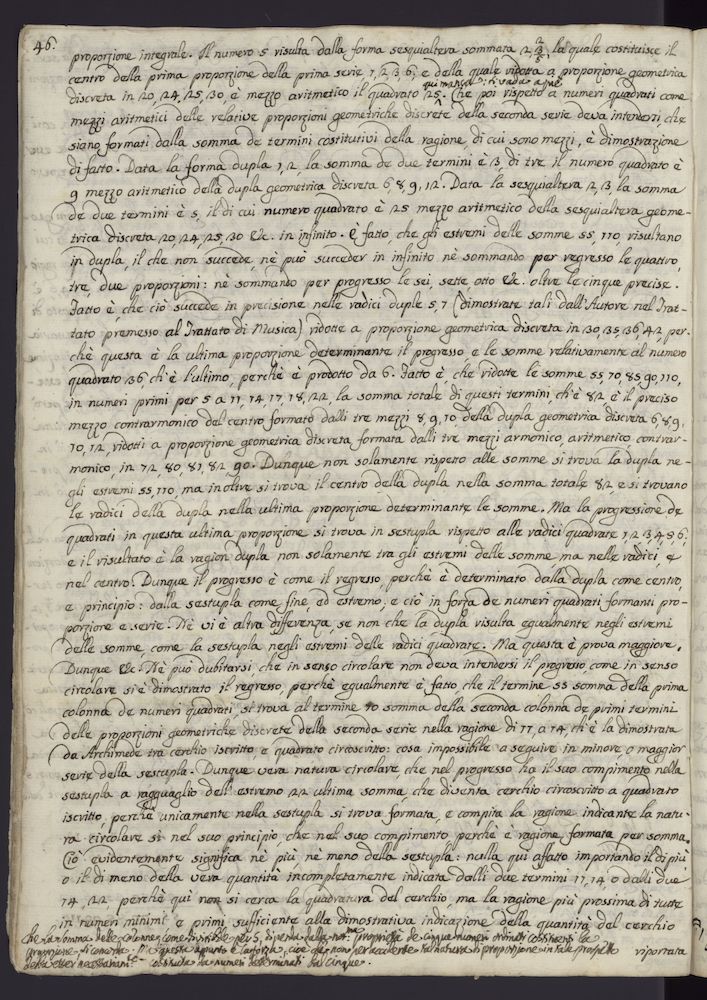 46.
proporzione integrale. Il numero 5 risulta dalla forma sesquialtera sommata 2, 2/3/5, la quale costituisce il
centro della prima proporzione della prima serie, 1, 2, 3, 6; e della quale ridotta a proporzione geometrica
qui manca: si vada a piè
discreta in 20, 24, 25, 30 è mezzo aritmetico il quadrato 25. Che poi rispetto a numeri quadrati come
mezzi aritmetici delle relative proporzioni geometriche discrete della seconda serie deva intendersi che
siano formati dalla somma de termini costitutivi della ragione, di cui sono mezzi, è dimostrazione
di fatto. Data la forma dupla 1, 2, la somma de due termini è 3, di tre il numero quadrato è
9 mezzo aritmetico della dupla geometrica discreta 6, 8, 9, 12. Data la sesquialtera 2, 3, la somma
de due termini è 5, il di cui numero quadrato è 25 mezzo aritmetico della sesquialtera geome-
trica discreta 20, 24, 25, 30 &c. in infinito. È fatto, che gli estremi delle somme 55, 110, risultano
in dupla, il che non succede, nè può succeder in infinito nè sommando per regresso le quattro,
tre, due proporzioni: nè sommando per progresso le sei, sette, otto &c. oltre le cinque precise.
Fatto è che ciò succede in precisione nelle radici duple 5, 7 (dimostrate tali dall'Autore nel Trat-
tato premesso al Trattato di Musica) ridotte a proporzione geometrica discreta in 30, 35, 36, 42, per-
chè questa è la ultima proporzione determinante il progresso e le somme relativamente al numero
quadrato 36 ch'è l'ultimo, perchè è prodotto da 6. Fatto è, che ridotte le somme 55, 70, 85, 90, 110,
in numeri primi per 5 a 11, 14, 17, 18, 22, la somma totale di questi termini ch'è 82 è il preciso
mezzo contrarmonico del centro formato dalli tre mezzi 8, 9, 10 della dupla geometrica discreta 6, 8, 9,
10, 12, ridotti a proporzione geometrica discreta formata dalli tre mezzi armonico, aritmetico, contrar-
monico, in 72, 80, 81, 82, 90. Dunque non solamente rispetto alle somme si trova la dupla ne-
gli estremi 55, 110, ma inoltre si trova il centro della dupla nella somma totale 82, e si trovano
le radici della dupla nella ultima proporzione determinante le somme. Ma la progressione de
quadrati in questa ultima proporzione si trova in sestupla rispetto alle radici quadrate 1, 2, 3, 4, 5, 6;
e il risultato è la ragion dupla non solamente tra gli estremi delle somme, ma nelle radici, e
nel centro. Dunque il progresso è come il regresso, perchè è determinato dalla dupla come centro,
e principio: dalla sestupla come fine, ed estremo, e ciò in forza de numeri quadrati formanti pro-
porzione e serie. Nè vi è altra differenza, se non che la dupla risulta egualmente negli estremi
delle somme, come la sestupla negli estremi delle radici quadrate. Ma questa è prova maggiore.
Dunque &c. Nè può dubitarsi, che in senso circolare non deva intendersi il progresso, come in senso
circolare si è dimostrato il regresso, perchè egualmente è fatto, che il termine 55 somma della prima
colonna de numeri quadrati si trova al termine 70 somma della seconda colonna de primi termini
delle proporzioni geometriche discrete della seconda serie nella ragione di 11, a 14, ch'è la dimostrata
da Archimede tra cerchio iscritto, e quadrato circoscritto: cosa impossibile a seguire in minore o maggior
serie della sestupla. Dunque vera natura circolare, che nel progresso ha il suo compimento nella
sestupla a ragguaglio dell'estremo 22 ultima somma che diventa cerchio circoscritto a quadrato
iscritto, perchè unicamente nella sestupla si trova formata, e compita la ragione indicante la natu-
ra circolare sì nel suo principio, che nel suo compimento perchè è ragione formata per somma.
Ciò evidentemente significa nè più nè meno della sestupla: nulla qui affatto importando il di più
o il di meno della vera quantità incompletamente indicata dalli due termini 11, 14, o dalli due
14, 22, perchè qui non si cerca la quadratura del cerchio, ma la ragione più prossima di tutte
in numeri minimi e primi, sufficiente alla dimostrativa indicazione della quantità del cerchio
che la somma delle colonne, come divisibile per 5, dipenda dalla proprietà de cinque numeri
deva esser necessariam.te costituita da numeri determinati dal cinque.
riportata